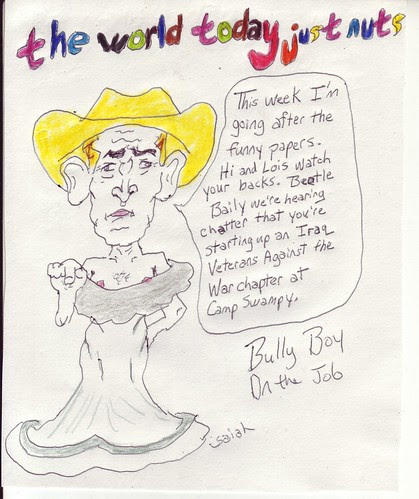 the world today just nuts
This week I'm
going after the
funny papers.
Hi and Lois watch
your backs. Beetle
Baily we're hearing
chatter that you're
starting up an Iraq
Veterans Against the
War chapter at
Camp Swampy.
Bully Boy
On the Job
isaiah